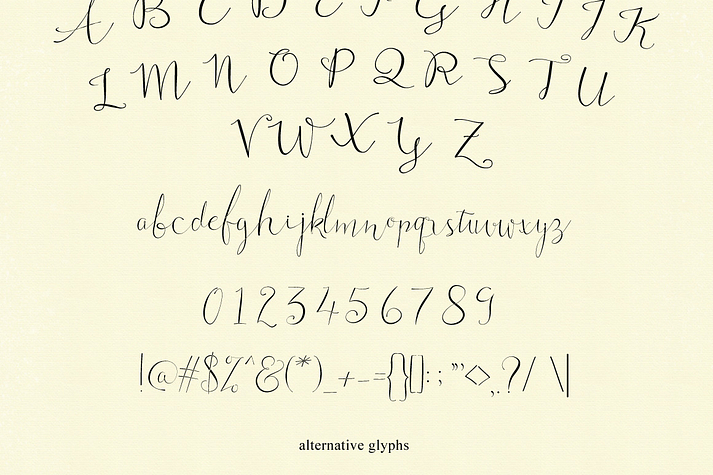 A B C D E F G H I J K
L M N O P Q R S T U
V W X Y Z
abcdefghijklmnopqrstuvwxyz
0123456789
!@#$%^&(*)_+-={}[]:;"'<>,.?/\|
alternative glyphs